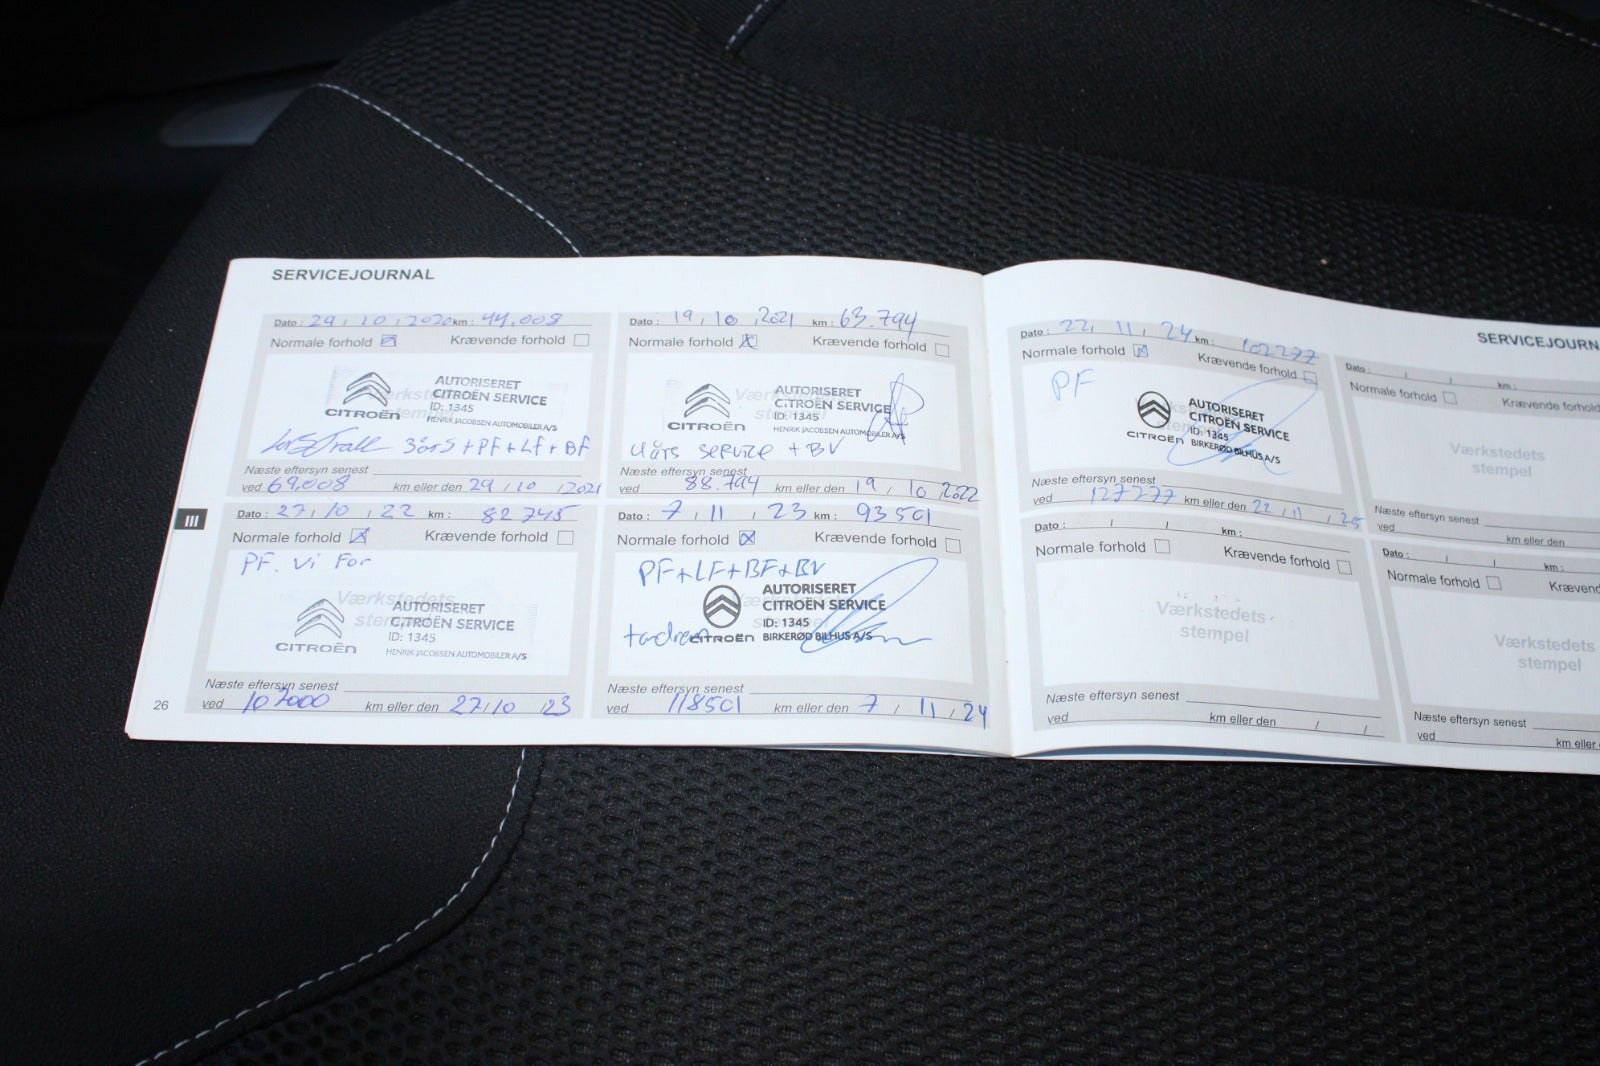 SERVICEJOURNAL
Dato : 29 / 10 / 2020 km : 44.008
Normale forhold Krævende forhold
Værkstedets
stempel
CITROËN
AUTORISERET
CITROËN SERVICE
ID: 1345
HENRIK JACOBSEN AUTOMOBILER A/S
3års +PF+LF+BF
Næste eftersyn senest
ved 69.008 km eller den 29 / 10 / 2021
Dato : 19 / 10 / 2021 km : 63.794
Normale forhold Krævende forhold
Værkstedets
stempel
CITROËN
AUTORISERET
CITROËN SERVICE
ID: 1345
HENRIK JACOBSEN AUTOMOBILER A/S
4års service +BV
Næste eftersyn senest
ved 88.794 km eller den 19 / 10 / 2022
III
Dato : 27 / 10 / 22 km : 82745
Normale forhold Krævende forhold
PF. Vi For
Værkstedets
stempel
CITROËN
AUTORISERET
CITROËN SERVICE
ID: 1345
HENRIK JACOBSEN AUTOMOBILER A/S
Næste eftersyn senest
ved 107000 km eller den 27 / 10 / 23
26
Dato : 7 / 11 / 23 km : 93501
Normale forhold Krævende forhold
PF+LF+BF+BV
CITROËN
AUTORISERET
CITROËN SERVICE
ID: 1345
BIRKERØD BILHUS A/S
Næste eftersyn senest
ved 118501 km eller den 7 / 11 / 24
SERVICEJOURN
Dato : 22 / 11 / 24 km : 102277
Normale forhold Krævende forhold
PF
CITROËN
AUTORISERET
CITROËN SERVICE
ID: 1345
BIRKERØD BILHUS A/S
Næste eftersyn senest
ved 127277 km eller den 22 / 11 / 25
Dato : / / km :
Normale forhold Krævende forhold
Værkstedets
stempel
Næste eftersyn senest
ved km eller den
Dato : / / km :
Normale forhold Krævende forhold
Værkstedets
stempel
Næste eftersyn senest
ved km eller den / /
Dato : / / km :
Normale forhold Krævend
Værkstedets
stempel
Næste eftersyn senest
ved km eller